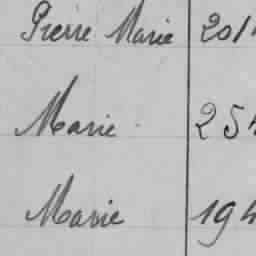 Pierre Marie 201
Marie 25
Marie 194